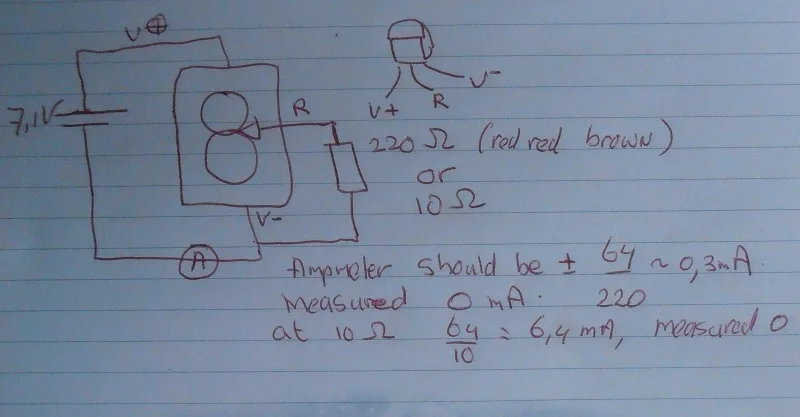 V⊕
7,1V
R
V-
A
V-
V+
R
220 Ω (red red brown)
or
10 Ω
Ampmeter should be ± 64/220 ~ 0,3mA.
measured 0 mA.
at 10 Ω 64/10 = 6,4 mA, measured 0